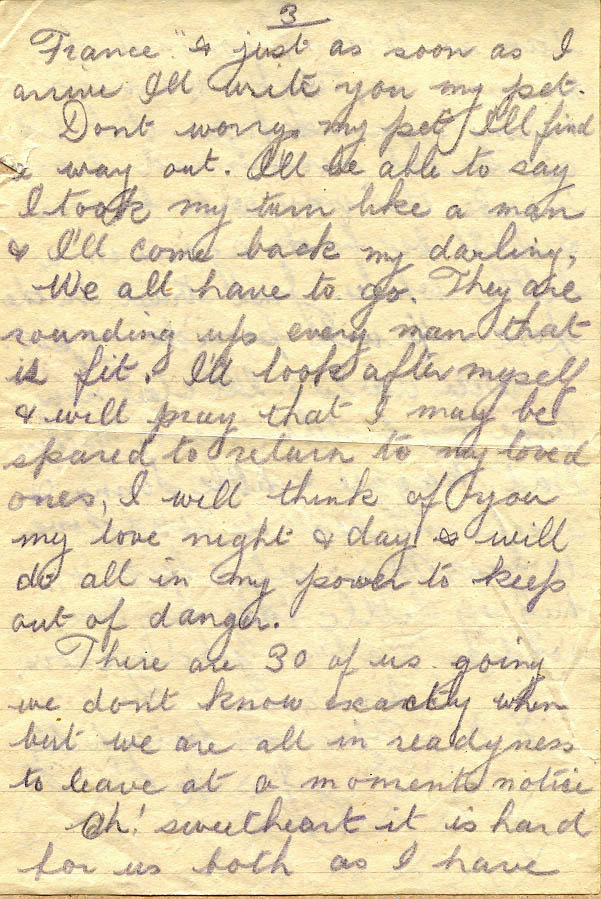 3
France" & just as soon as I
arrive I'll write you my pet.
Dont worry my pet I'll find
a way out. I'll be able to say
I took my turn like a man
& I'll come back my darling,
We all have to go. They are
rounding ups every man that
is fit. I'll look after myself
& will pray that I may be
spared to return to my loved
ones, I will think of you
my love night & day & will
do all in my power to keep
out of danger.
There are 30 of us going
we don't know exactly when
but we are all in readyness
to leave at a moments notice
Oh! sweetheart it is hard
for us both as I have